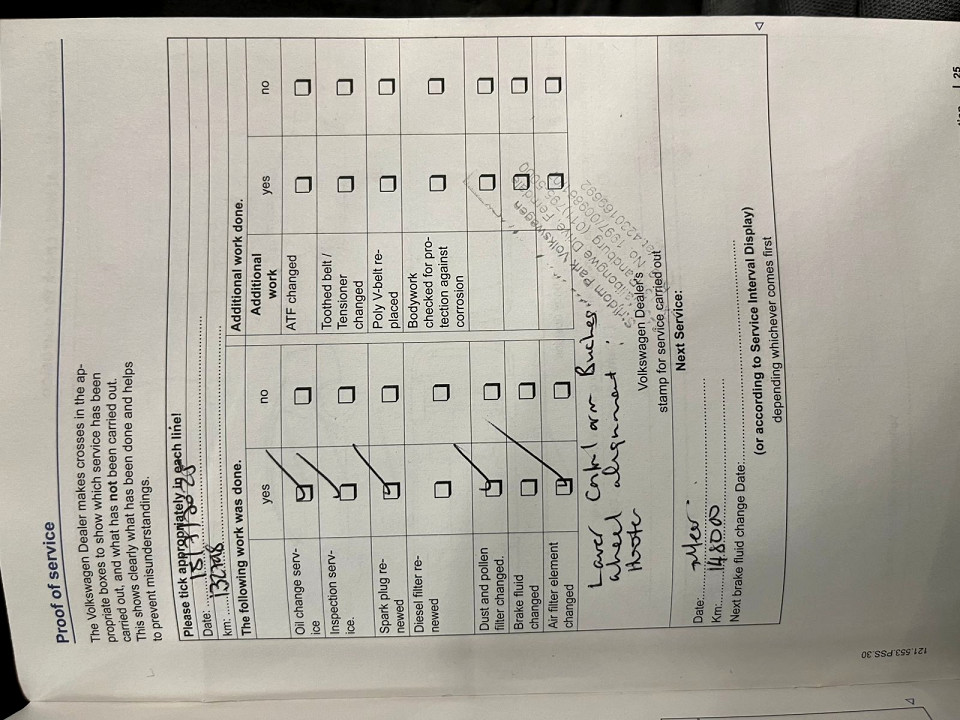 Proof of service
The Volkswagen Dealer makes crosses in the ap-
propriate boxes to show which service has been
carried out, and what has not been carried out.
This shows clearly what has been done and helps
to prevent misunderstandings.
Please tick appropriately in each line!
Date:
km:
The following work was done.
yes
no
Oil change serv-
ice
Inspection serv-
ice.
Spark plug re-
newed
Diesel filter re-
newed
Dust and pollen
filter changed.
Brake fluid
changed
Air filter element
changed
Additional work done.
Additional
work
yes
no
ATF changed
Toothed belt /
Tensioner
changed
Poly V-belt re-
placed
Bodywork
checked for pro-
tection against
corrosion
Lower Control arm Bushes
wheel alignment
Park Volkswagen
Drive
Volkswagen Dealer's
stamp for service carried out
Next Service:
Date:
Km: 148000
Next brake fluid change Date:
(or according to Service Interval Display)
depending whichever comes first
121.553.PSS.30
25